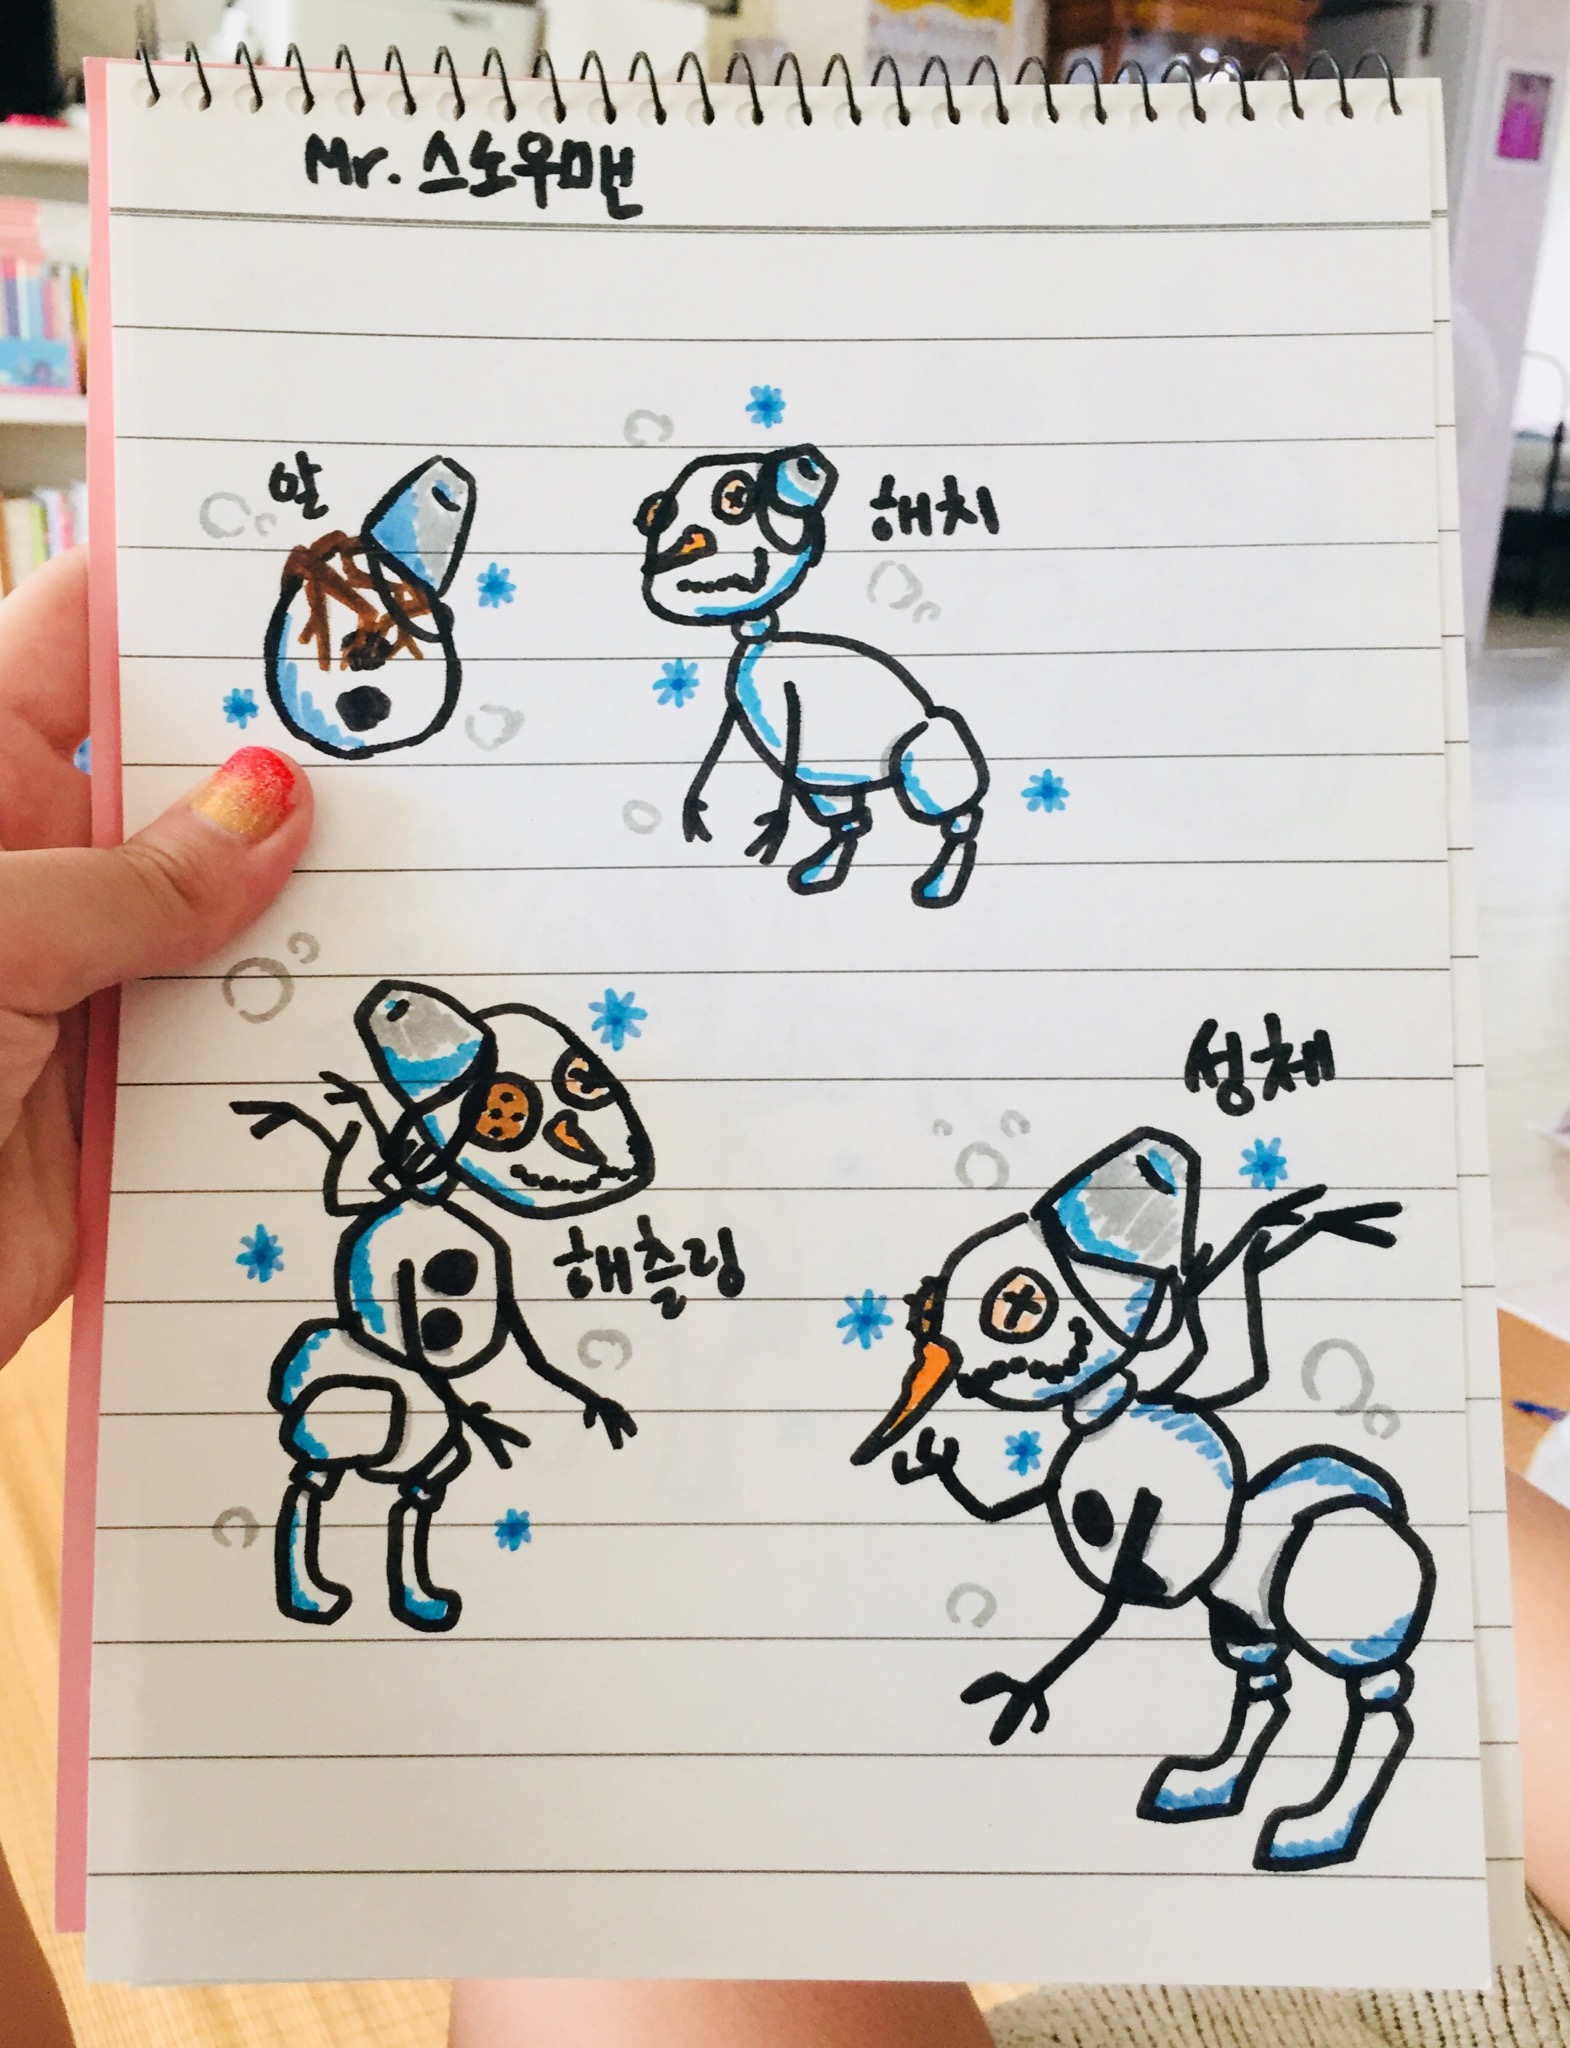 Mr. 스노우맨
알
해치
해츨링
성체